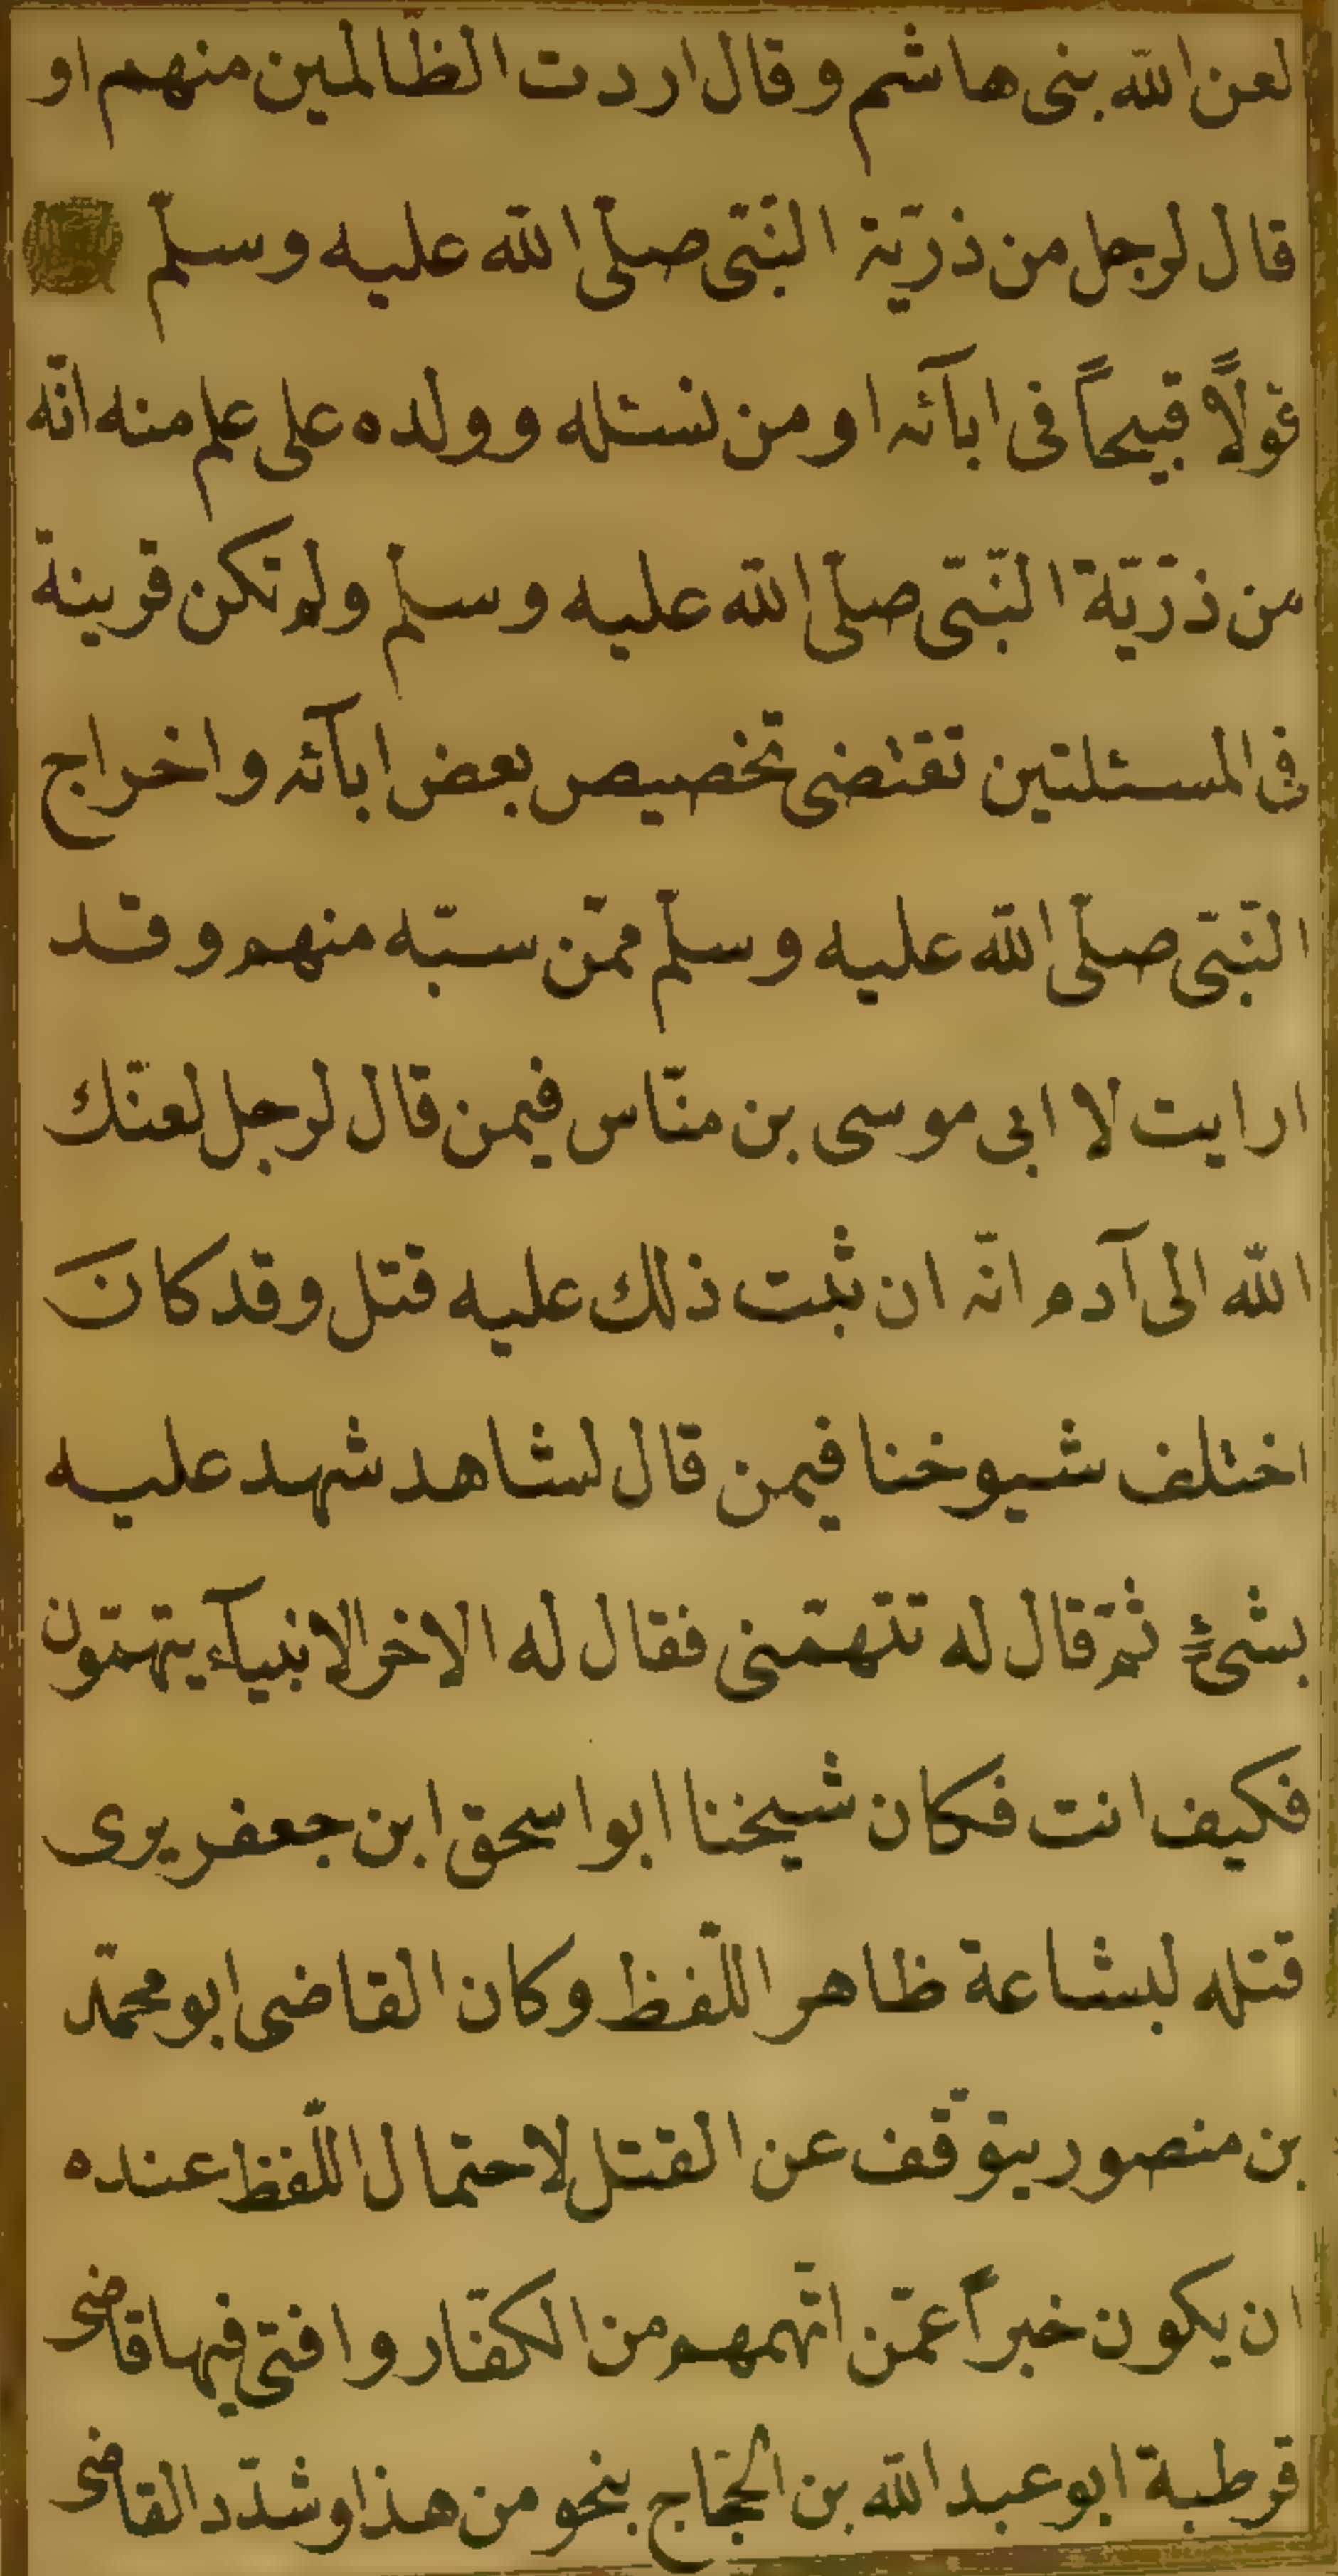 لعن الله بنى هاشم وقال اردت الظالمين منهم او
قال لرجل من ذرّيّة النّبىّ صلّى الله عليه وسلّم
قولاً قبيحاً فى ابآئه او من نسئله وولده على علم منه انّه
من ذرّيّة النّبىّ صلّى الله عليه وسلم ولم تكن قرينة
فى المسئلتين تقتضى تخصيص بعض ابآئه واخراج
النّبىّ صلّى الله عليه وسلّم ممّن سبّه منهم وقد
ارايت لا ابى موسى بن منّاس فيمن قال لرجل لعنك
الله الى آدم انّه ان ثبت ذلك عليه قتل وقد كانَ
اختلف شيوخنا فيمن قال لشاهد شهد عليه
بشىءٍ ثمّ قال له تتهمّنى فقال له الاخر الانبيآء يتهمّون
فكيف انت فكان شيخنا ابو اسحق ابن جعفر يرى
قتله لبشاعة ظاهر اللّفظ وكان القاضى ابو محمّد
بن منصور يتوقّف عن القتل لاحتمال اللّفظ عنده
ان يكون خبراً عمّن اتّهمهم من الكفّار وافتى فيها قاضى
قرطبة ابو عبد الله بن الحجّاج بنحو من هذا وشدّد القاضى